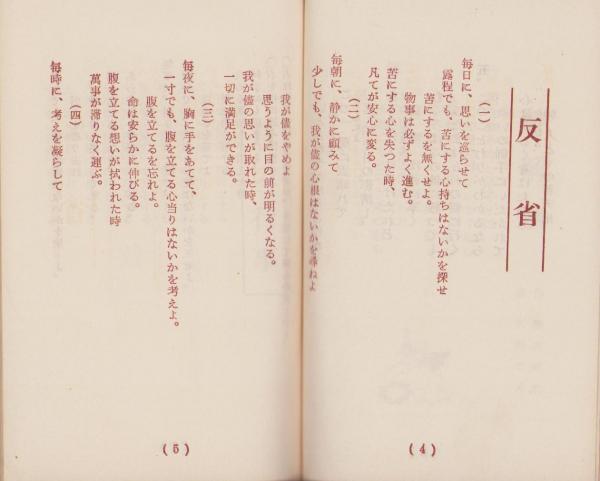 反省
(一)
毎日に、思いを巡らせて
露程でも、苦にする心持ちはないかを探せ
苦にするを無くせよ。
物事は必ずよく進む。
苦にする心を失つた時、
凡てが安心に変る。
(二)
毎朝に、静かに顧みて
少しでも、我が儘の心根はないかを尋ねよ
(4)
我が儘をやめよ
思うように目の前が明るくなる。
我が儘の思いが取れた時、
一切に満足ができる。
(三)
毎夜に、胸に手をあてて、
一寸でも、腹を立てる心当りはないかを考えよ。
腹を立てるを忘れよ。
命は安らかに伸びる。
腹を立てる想いが拭われた時
萬事が滞りなく運ぶ。
(四)
毎時に、考えを凝らして
(5)